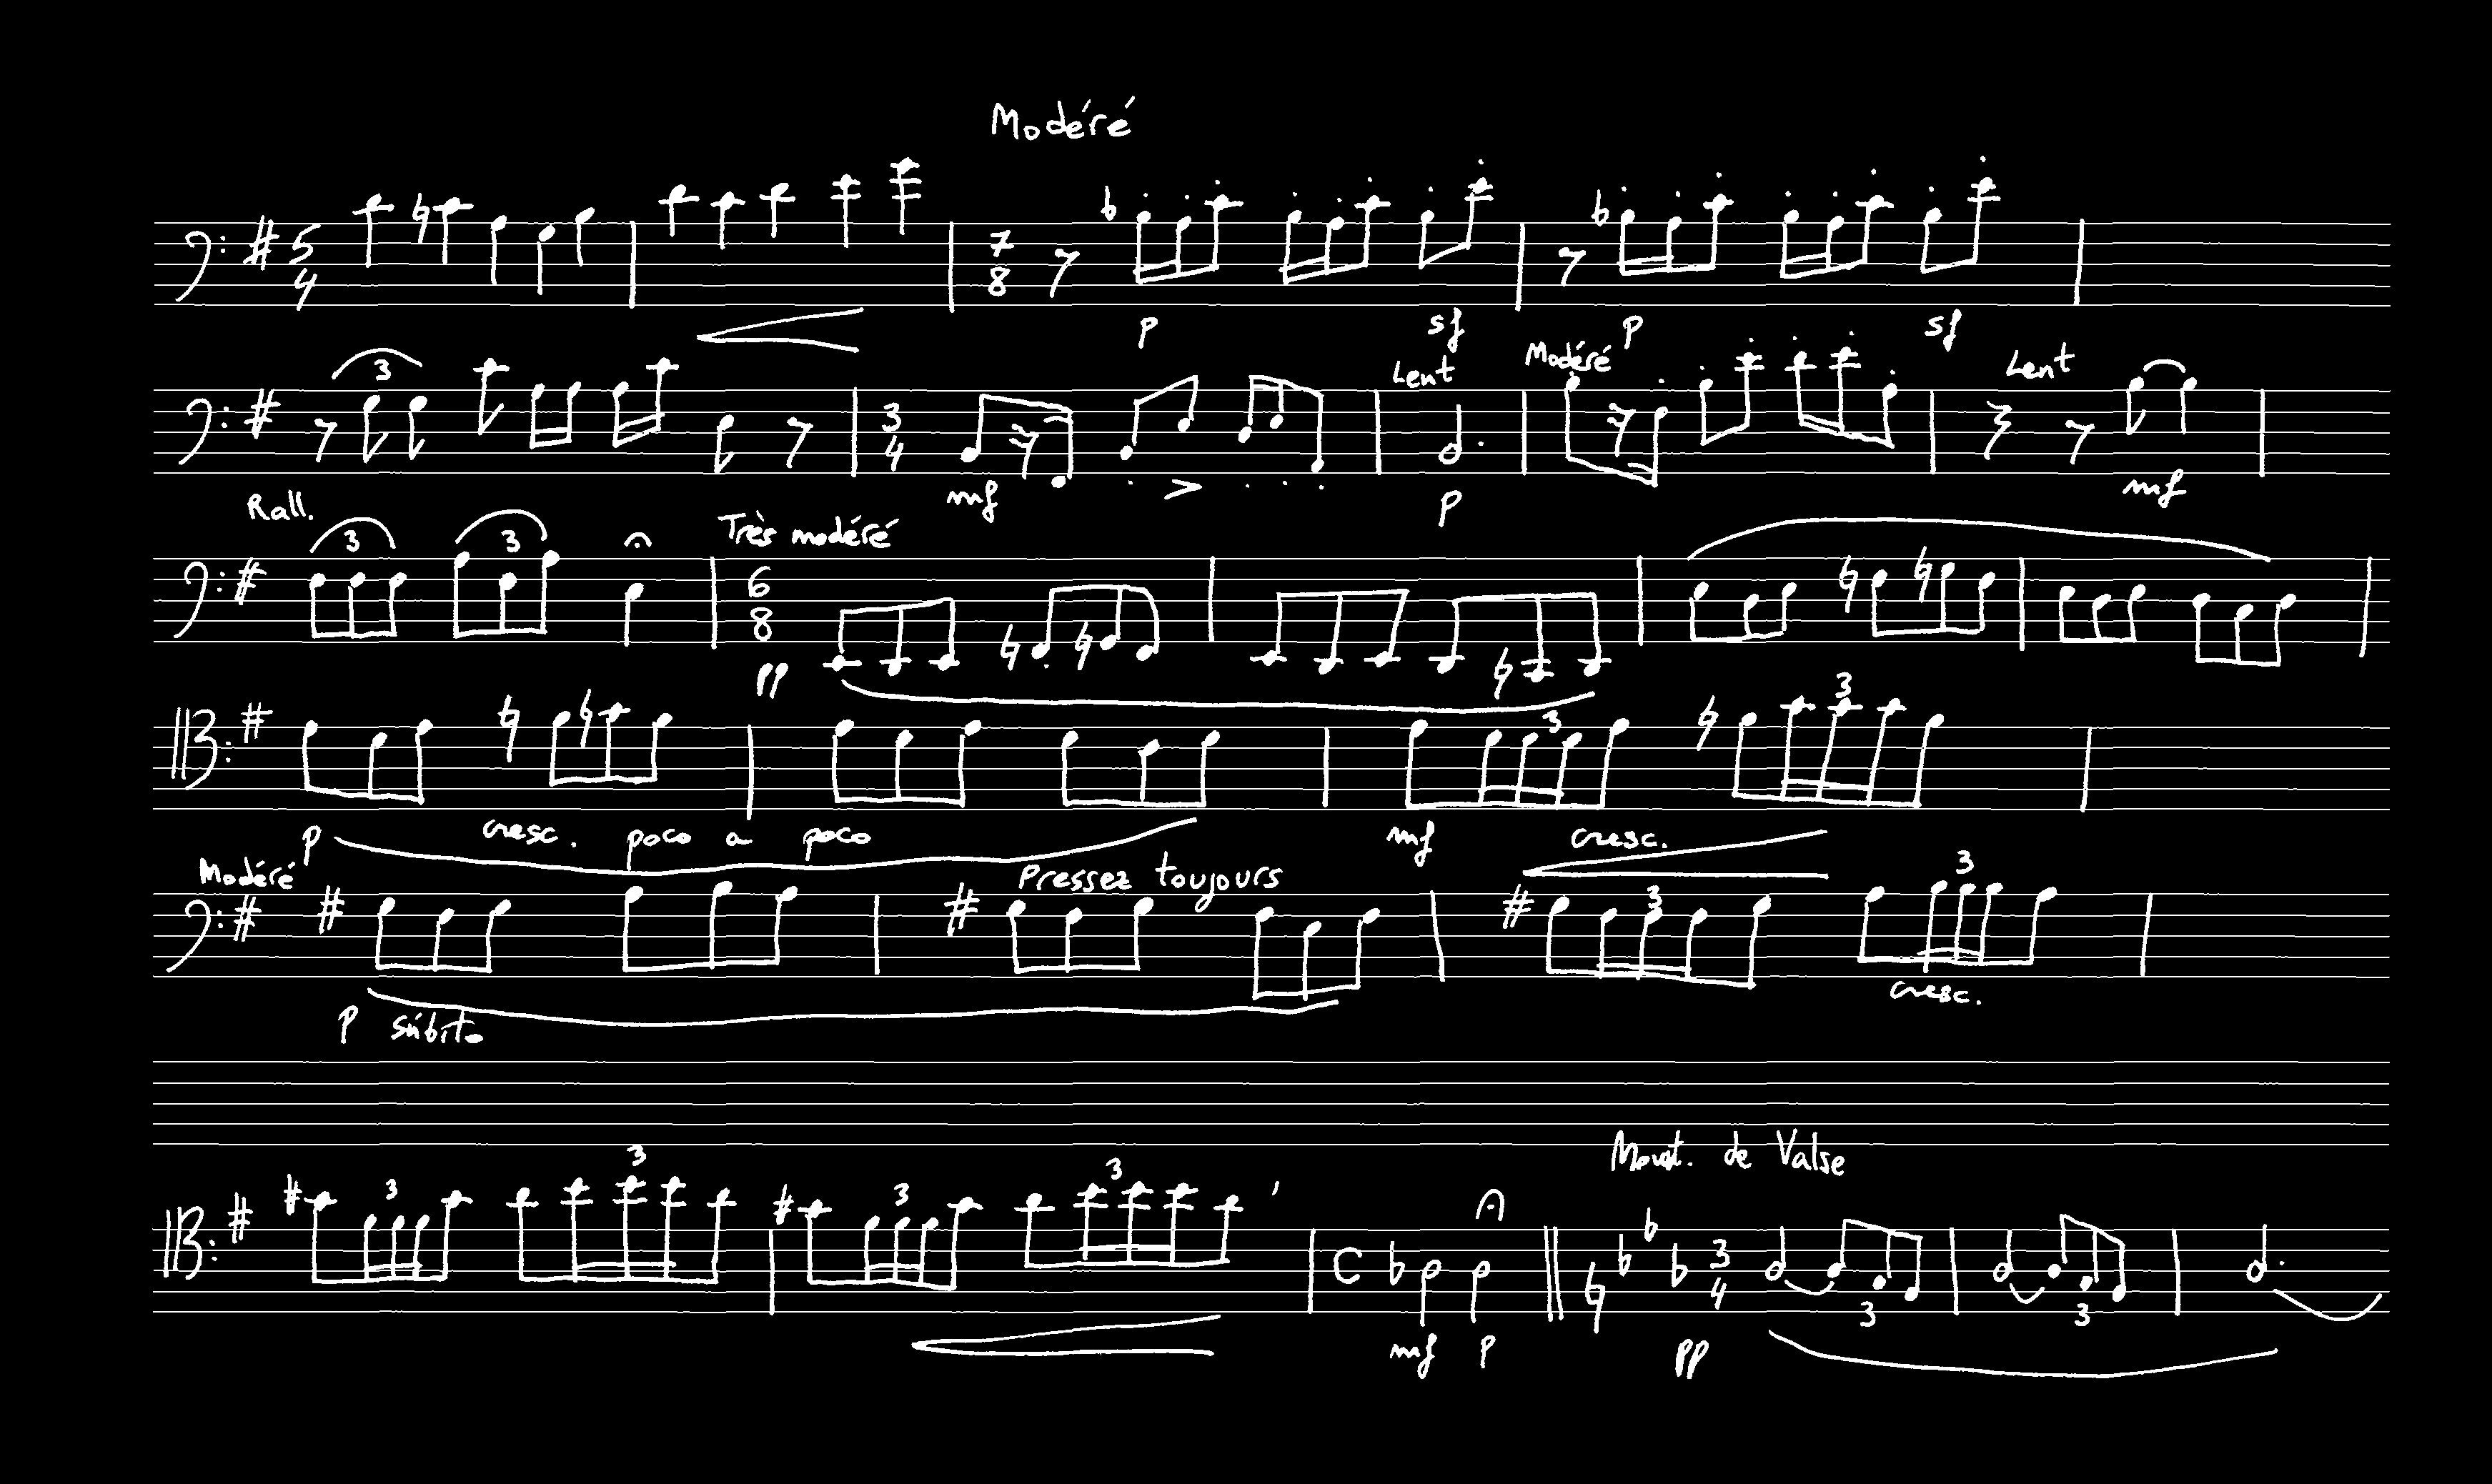 Modéré
5 4 7 8
p sf p sf
3 Lent Modéré Lent
3 4
mf p mf
Rall. 3 3 Très modéré
6 8
pp
3 3
p cresc. poco a poco mf cresc.
Modéré Pressez toujours 3 3
p súbito cresc.
Mouvt. de Valse
3 3 3 3
C 3 4 3 3
mf p pp